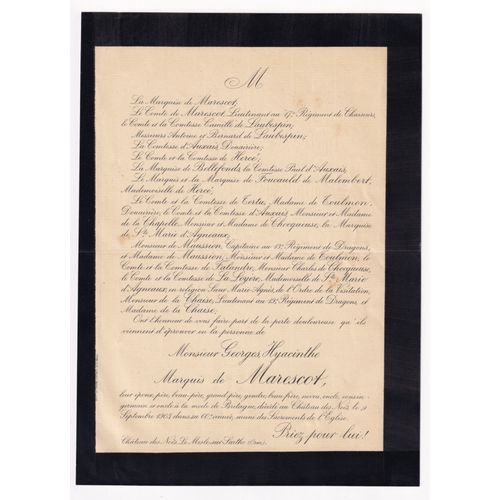 M
La Marquise de Marescot,
Le Comte de Marescot, Lieutenant au 17e Régiment de Chasseurs,
le Comte et la Comtesse Camille de Laubespin;
Messieurs Antoine et Bernard de Laubespin;
La Comtesse d'Auxais Douairière;
Le Comte et la Comtesse de Hercé;
La Marquise de Bellefonds, la Comtesse Paul d'Auxais;
Le Marquis et la Marquise de Foucauld de Malembert,
Mademoiselle de Hercé;
Le Comte et la Comtesse de Certu, Madame de Coulmon,
Douairière, le Comte et la Comtesse d'Auxais, Monsieur et Madame
de la Chapelle, Monsieur et Madame de Chocqueuse, la Marquise
de Ste Marie d'Agneaux,
Monsieur de Maussion, Capitaine au 13e Régiment de Dragons,
et Madame de Maussion, Monsieur et Madame de Coulmon, le
Comte et la Comtesse de Falandre, Monsieur Charles de Chocqueuse,
le Comte et la Comtesse de La Loyère, Mademoiselle de Ste Marie
d'Agneaux, en religion Sœur Marie-Agnès, de l'Ordre de la Visitation,
Monsieur de la Chaise, Lieutenant au 13e Régiment de Dragons, et
Madame de la Chaise;
Ont l'honneur de vous faire part de la perte douloureuse qu'ils
viennent d'éprouver en la personne de
Monsieur Georges Hyacinthe
Marquis de Marescot,
leur époux, père, beau-père, grand-père, gendre, beau-frère, neveu, oncle, cousin-
germain et oncle à la mode de Bretagne, décédé au Château des Noës le
Septembre 1904 dans sa 60e année, muni des Sacrements de l'Eglise.
Priez pour lui!
Château des Noës, Le Mesle-sur-Sarthe (Orne)